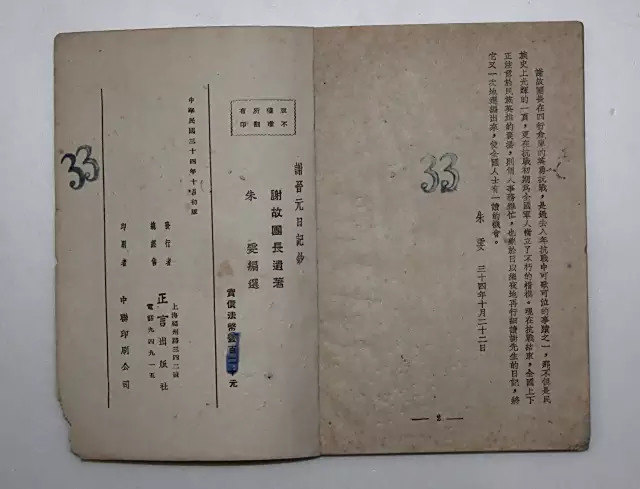 謝故團長在四行倉庫的英勇抗戰，是過去八年抗戰中可歌可泣的事蹟之一，那不但是民
族史上光輝的一頁，更在抗戰初期爲全國軍人樹立了不朽的楷模。現在抗戰結束，全國上下
正注意於民族英雄的表揚，則個人事務雖忙，也樂於日以繼夜地再行細讀謝先生的日記，終
它又一次地選編出來，使全國人士有一讀的機會。
朱雯 三十四年十月二十二日
— 2 —
33
謝晉元日記鈔
謝故團長遺著
朱雯編選
實價法幣 元
有所權版
印翻准不
中華民國三十四年十月初版
發行者 正言出版社
上海福州路三四二號
電話九四九一五
印刷者 中聯印刷公司
33